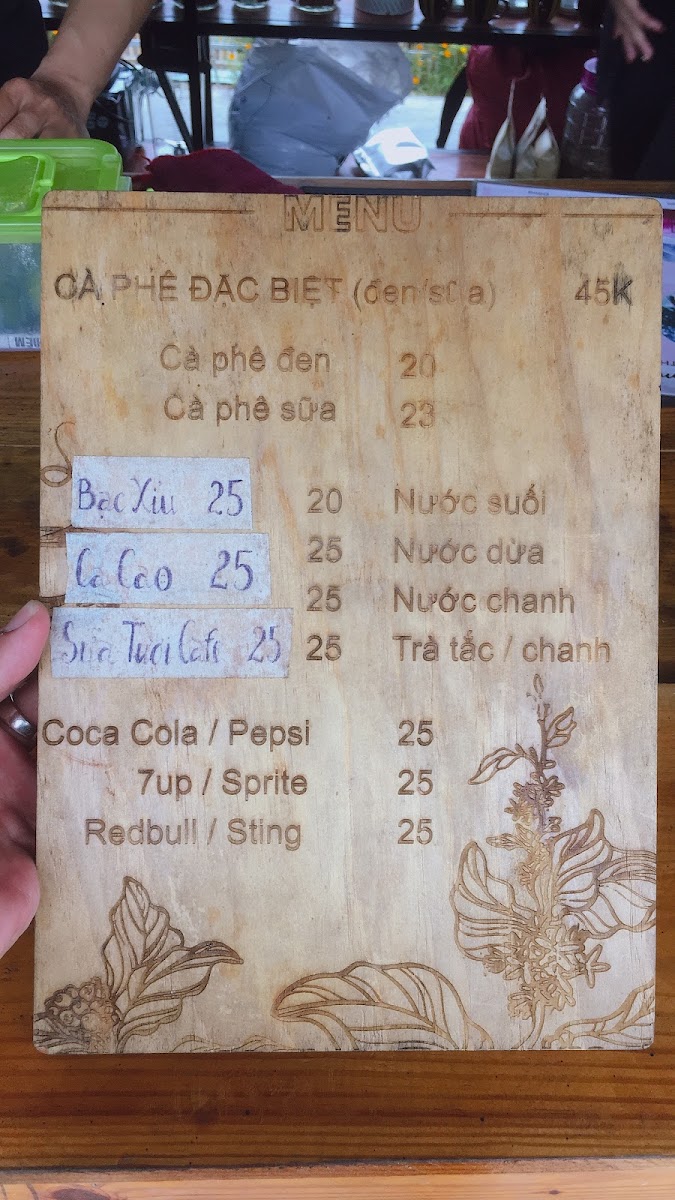 MENU
CÀ PHÊ ĐẶC BIỆT (đen/sữa) 45K
Cà phê đen 20
Cà phê sữa 23
Bạc Xỉu 25
20 Nước suối
Ca Cao 25
25 Nước dừa
25 Nước chanh
Sữa Tươi Cafe 25
25 Trà tắc / chanh
Coca Cola / Pepsi 25
7up / Sprite 25
Redbull / Sting 25